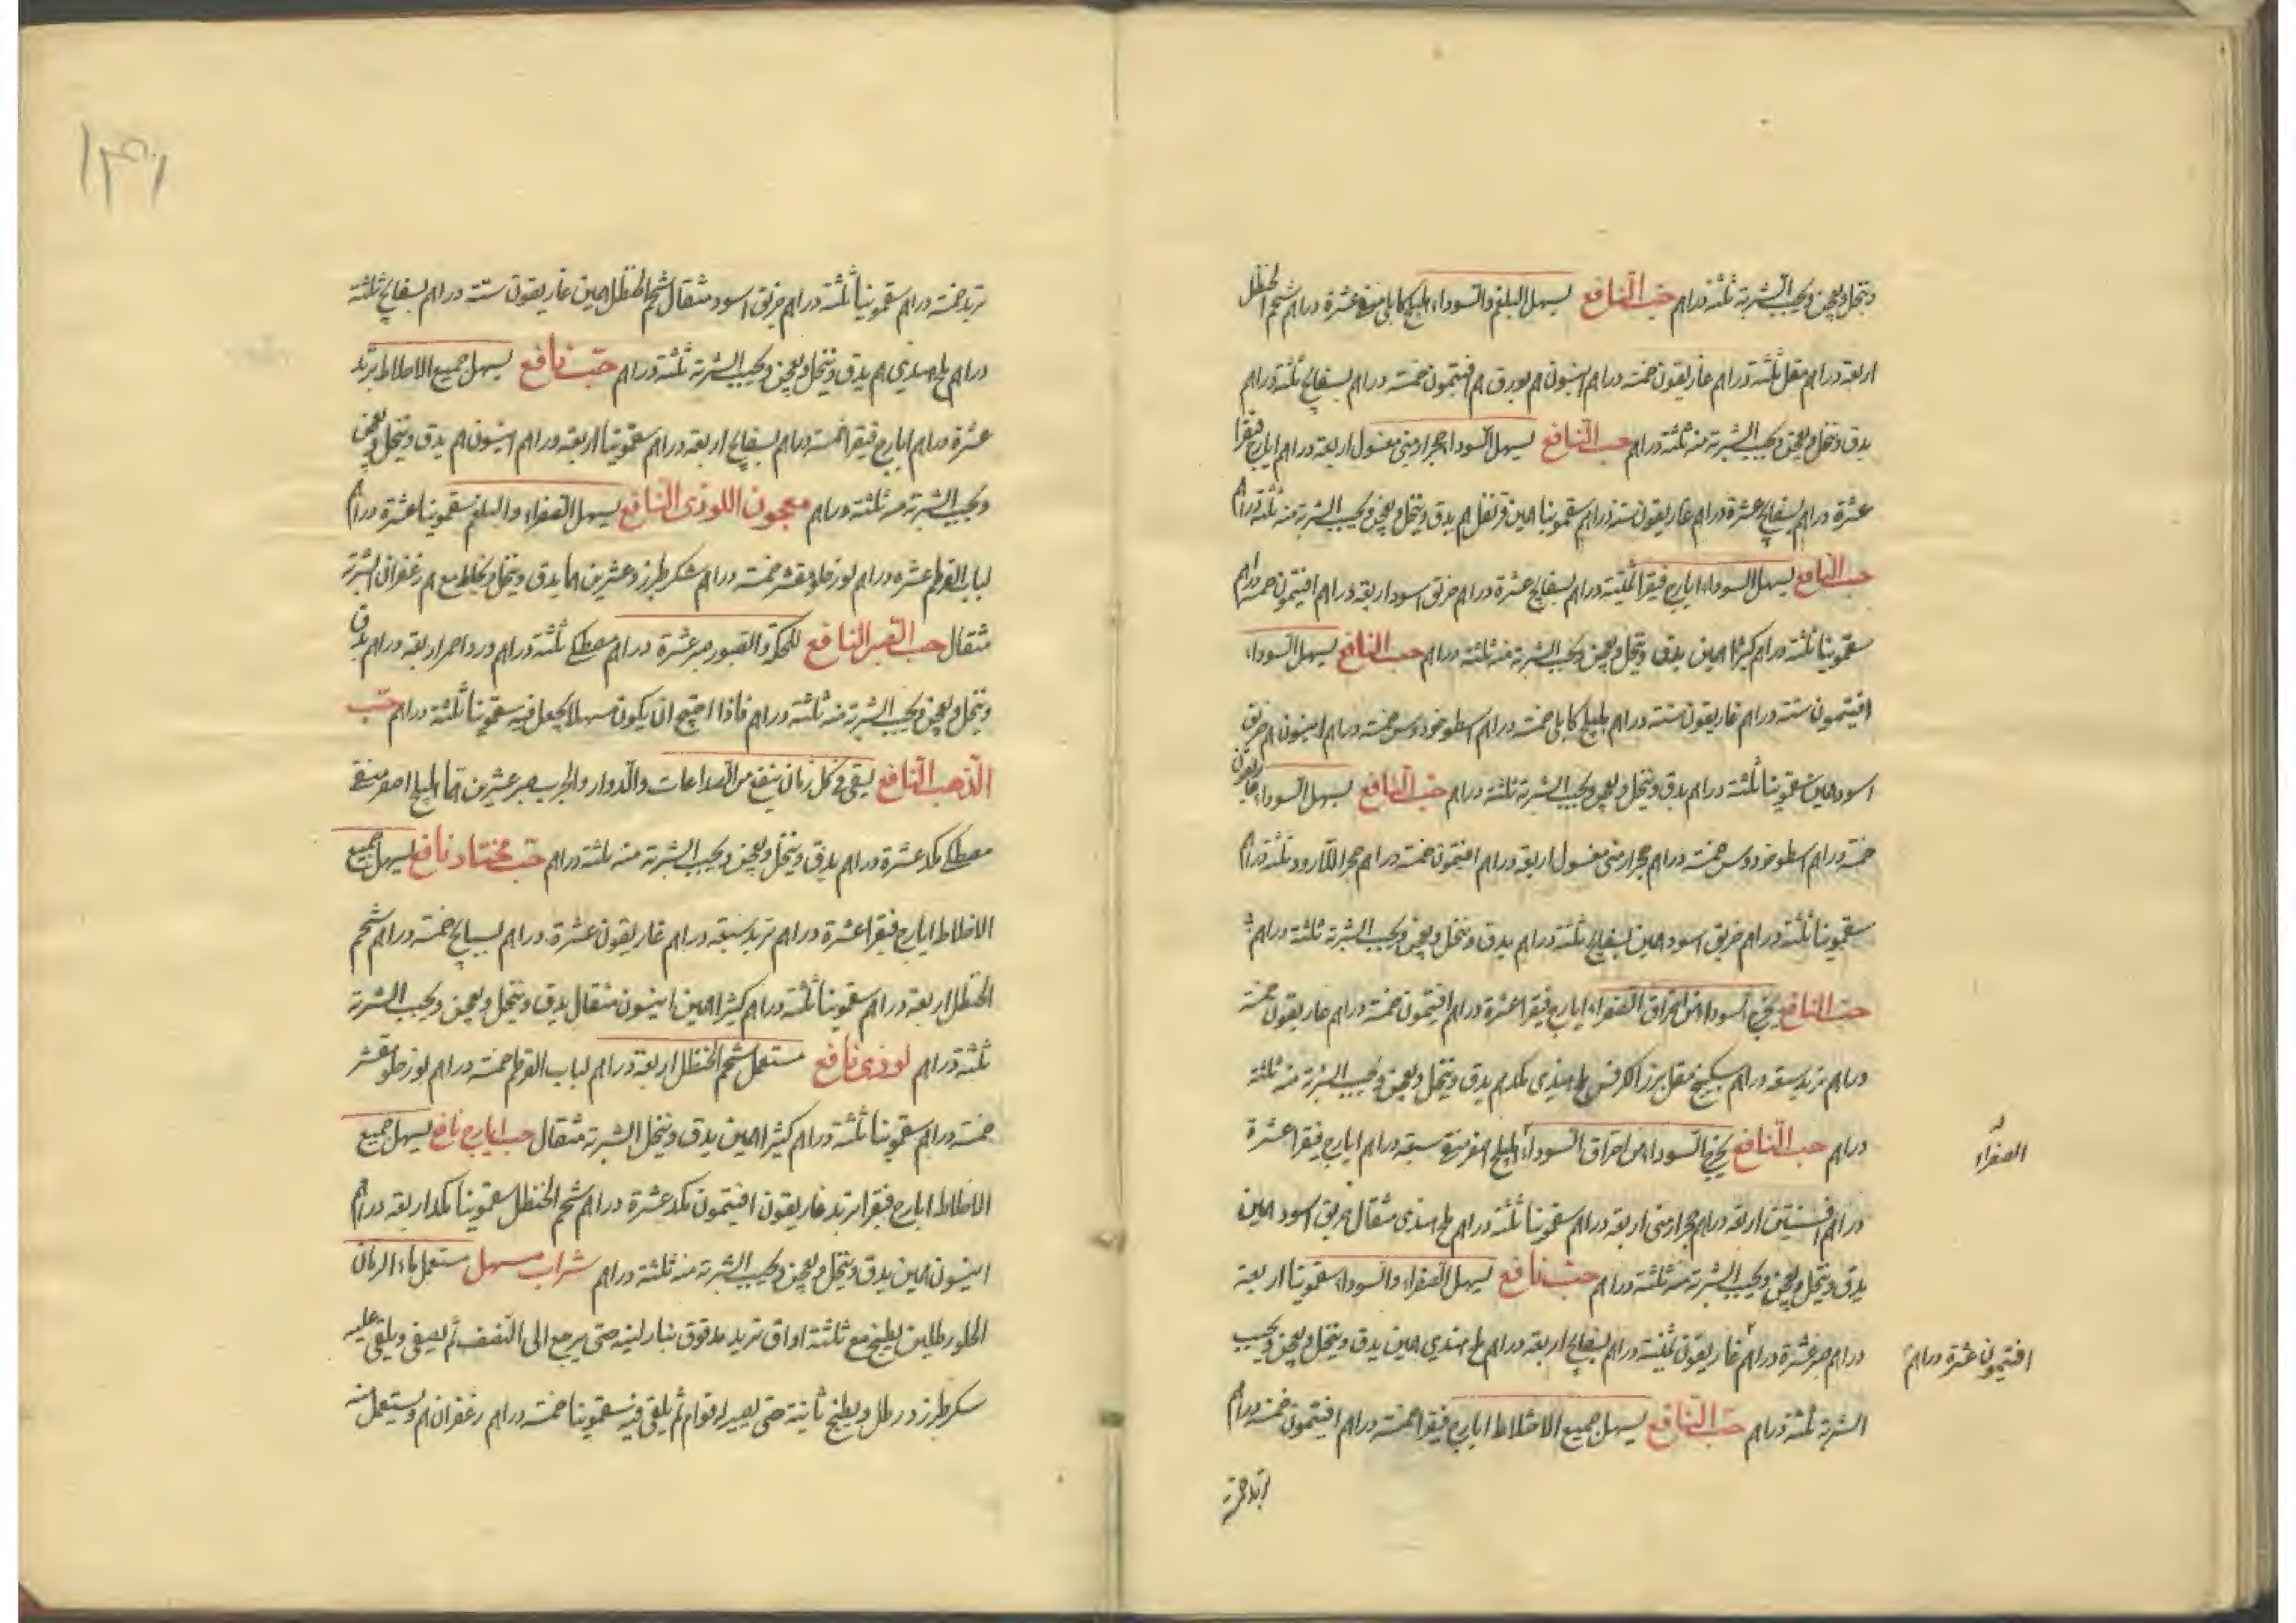 وينخل ويعجن ويحبب الشربة ثلثة دراهم حب النافع يسهل البلغم والسوداء هليلج كابلى منقى عشرة دراهم شحم الحنظل
اربعة دراهم مقل ثلثة دراهم غاريقون خمسة دراهم انيسون م بورق م افتيمون خمسة دراهم بسفايج ثلثة دراهم
يدق وينخل ويعجن ويحبب الشربة منه ثلثة دراهم حب النافع يسهل السوداء حجر ارمنى مغسول اربعة دراهم ايارج فيقرا
عشرة دراهم بسفايج عشرة دراهم غاريقون ستة دراهم سقمونيا مين قرنفل م يدق وينخل ويعجن ويحبب الشربة منه ثلثة دراهم
حب النافع يسهل السوداء ايارج فيقرا ثمنية دراهم بسفايج عشرة دراهم خربق اسود اربعة دراهم افتيمون خمسة دراهم
سقمونيا ثلثة دراهم كثيرا مين يدق وينخل ويعجن ويحبب الشربة منه ثلثة دراهم حب النافع يسهل السوداء
افتيمون ستة دراهم غاريقون ستة دراهم هليلج كابلى خمسة دراهم اسطوخودوس خمسة دراهم انيسون م خربق
اسود مين سقمونيا ثلثة دراهم يدق وينخل ويعجن ويحبب الشربة ثلثة دراهم حب النافع يسهل السوداء غاريقون
خمسة دراهم اسطوخودوس خمسة دراهم حجر ارمنى مغسول اربعة دراهم افتيمون خمسة دراهم حجر اللازورد ثلثة دراهم
سقمونيا ثلثة دراهم خربق اسود مين بسفايج ثلثة دراهم يدق وينخل ويعجن ويحبب الشربة ثلثة دراهم
حب النافع يخرج السوداء من احراق الصفراء ايارج فيقرا عشرة دراهم افتيمون خمسة دراهم غاريقون خمسة
دراهم تربد سبعة دراهم سكبينج مقل بزر الكرفس ملح هندى مكد م يدق وينخل ويعجن ويحبب الشربة منه ثلثة
دراهم حب النافع يخرج السوداء من احراق السوداء هليلج اصفر منقى سبعة دراهم ايارج فيقرا عشرة
الصفراء
دراهم افسنتين اربعة دراهم حجر ارمنى اربعة دراهم سقمونيا ثلثة دراهم ملح هندى مثقال خربق اسود مين
يدق وينخل ويعجن ويحبب الشربة منه ثلثة دراهم حب نافع يسهل الصفراء والسوداء سقمونيا اربعة
دراهم صبر عشرة دراهم غاريقون ثمنية دراهم بسفايج اربعة دراهم ملح هندي مين يدق وينخل ويعجن ويحبب
افتيمون عشرة دراهم
الشربة ثلثة دراهم حب النافع يسهل جميع الاخلاط ايارج فيقرا خمسة دراهم افتيمون خمسة دراهم
تربد خمسة
١٣١
تربد خمسة دراهم سقمونيا ثلثة دراهم خربق اسود مثقال شحم الحنظل مين غاريقون ستة دراهم بسفايج ثلثة
دراهم ملح هندي م يدق وينخل ويعجن ويحبب الشربة ثلثة دراهم حب نافع يسهل جميع الاخلاط تربد
عشرة دراهم ايارج فيقرا خمسة دراهم بسفايج اربعة دراهم سقمونيا اربعة دراهم انيسون م يدق وينخل ويعجن
ويحبب الشربة منه ثلثة دراهم معجون اللوذى النافع يسهل الصفراء والبلغم سقمونيا عشرة دراهم
لباب القرطم عشرة دراهم لوز حلو مقشر خمسة دراهم سكر طبرزد عشرين مها يدق وينخل ويخلط مع م زعفران الشربة
مثقال حب الصبر النافع للحكة والقبور صبر عشرة دراهم مصطكى ثلثة دراهم ورد احمر اربعة دراهم يدق
وينخل ويعجن ويحبب الشربة منه ثلثة دراهم فاذا احتيج ان يكون مسهلا يجعل فيه سقمونيا ثلثة دراهم حب
الذهب النافع يبقى فى كل زمان ينفع من الصداعات والدوار والجرب صبر عشرين مها هليلج اصفر منقى
مصطكى مكد عشرة دراهم يدق وينخل ويعجن ويحبب الشربة منه ثلثة دراهم حب مختار نافع يسهل جميع
الاخلاط ايارج فيقرا عشرة دراهم تربد سبعة دراهم غاريقون عشرة دراهم بسبايج خمسة دراهم شحم
الحنظل اربعة دراهم سقمونيا ثلثة دراهم كثيرا مين انيسون مثقال يدق وينخل ويعجن ويحبب الشربة
ثلثة دراهم لوذى نافع مستعمل شحم الحنظل اربعة دراهم لباب القرطم خمسة دراهم لوز حلو مقشر
خمسة دراهم سقمونيا ثلثة دراهم كثيرا مين يدق وينخل الشربة مثقال حب ايارج نافع يسهل جميع
الاخلاط ايارج فيقرا تربد غاريقون افتيمون مكد عشرة دراهم شحم الحنظل سقمونيا مكد اربعة دراهم
انيسون مين يدق وينخل ويعجن ويحبب الشربة منه ثلثة دراهم شراب مسهل مستعمل ماء الرمان
الحلو رطلين يطبخ مع ثلثة اواق تربد مدقوق بنار لينة حتى يرجع الى النصف ثم يصفى ويلقى عليه
سكر طبرزد رطل ويطبخ ثانية حتى يصير له قوام ثم يلقى فيه سقمونيا خمسة دراهم زعفران م ويستعمل منه